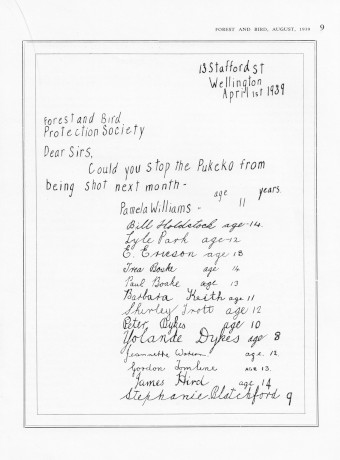 FOREST AND BIRD, AUGUST, 1939 9
13 Stafford St
Wellington
April 1st 1939
Forest and Bird
Protection Society
Dear Sirs,
Could you stop the Pukeko from
being shot next month -
Pamela Williams - age 11 years.
Bill Holdstock age 14.
Lyle Park age 12
E. Ericson age 13
Trea Boake age 14
Paul Boake age 13
Barbara Keith age 11
Shirley Trott age 12
Peter Dykes age 10
Yolande Dykes age 8
Jeannette age 12.
Gordon Tomline AGE 13.
James Hird age 14
Stephanie Blatchford 9